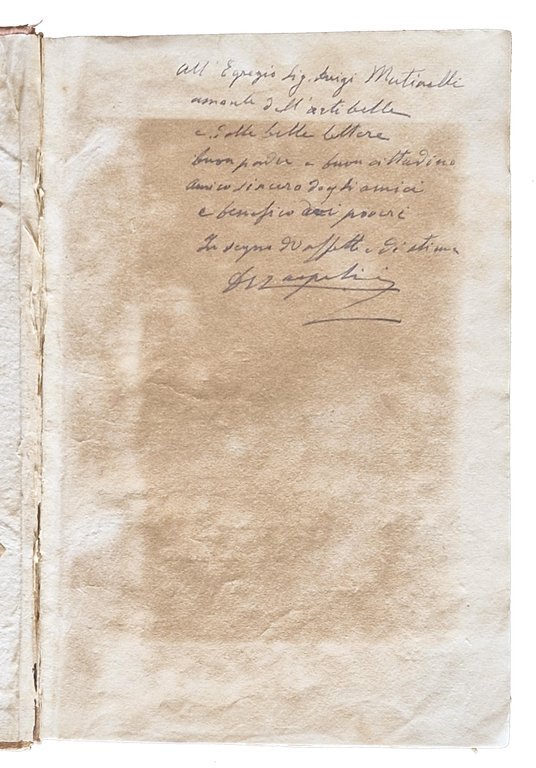 All' Egregio Sig. Luigi Mutinelli
amante dell'arti belle
e delle belle lettere
buon padre e buon cittadino
amico sincero degli amici
e benefico dei poveri
In segno di affetto e di stima